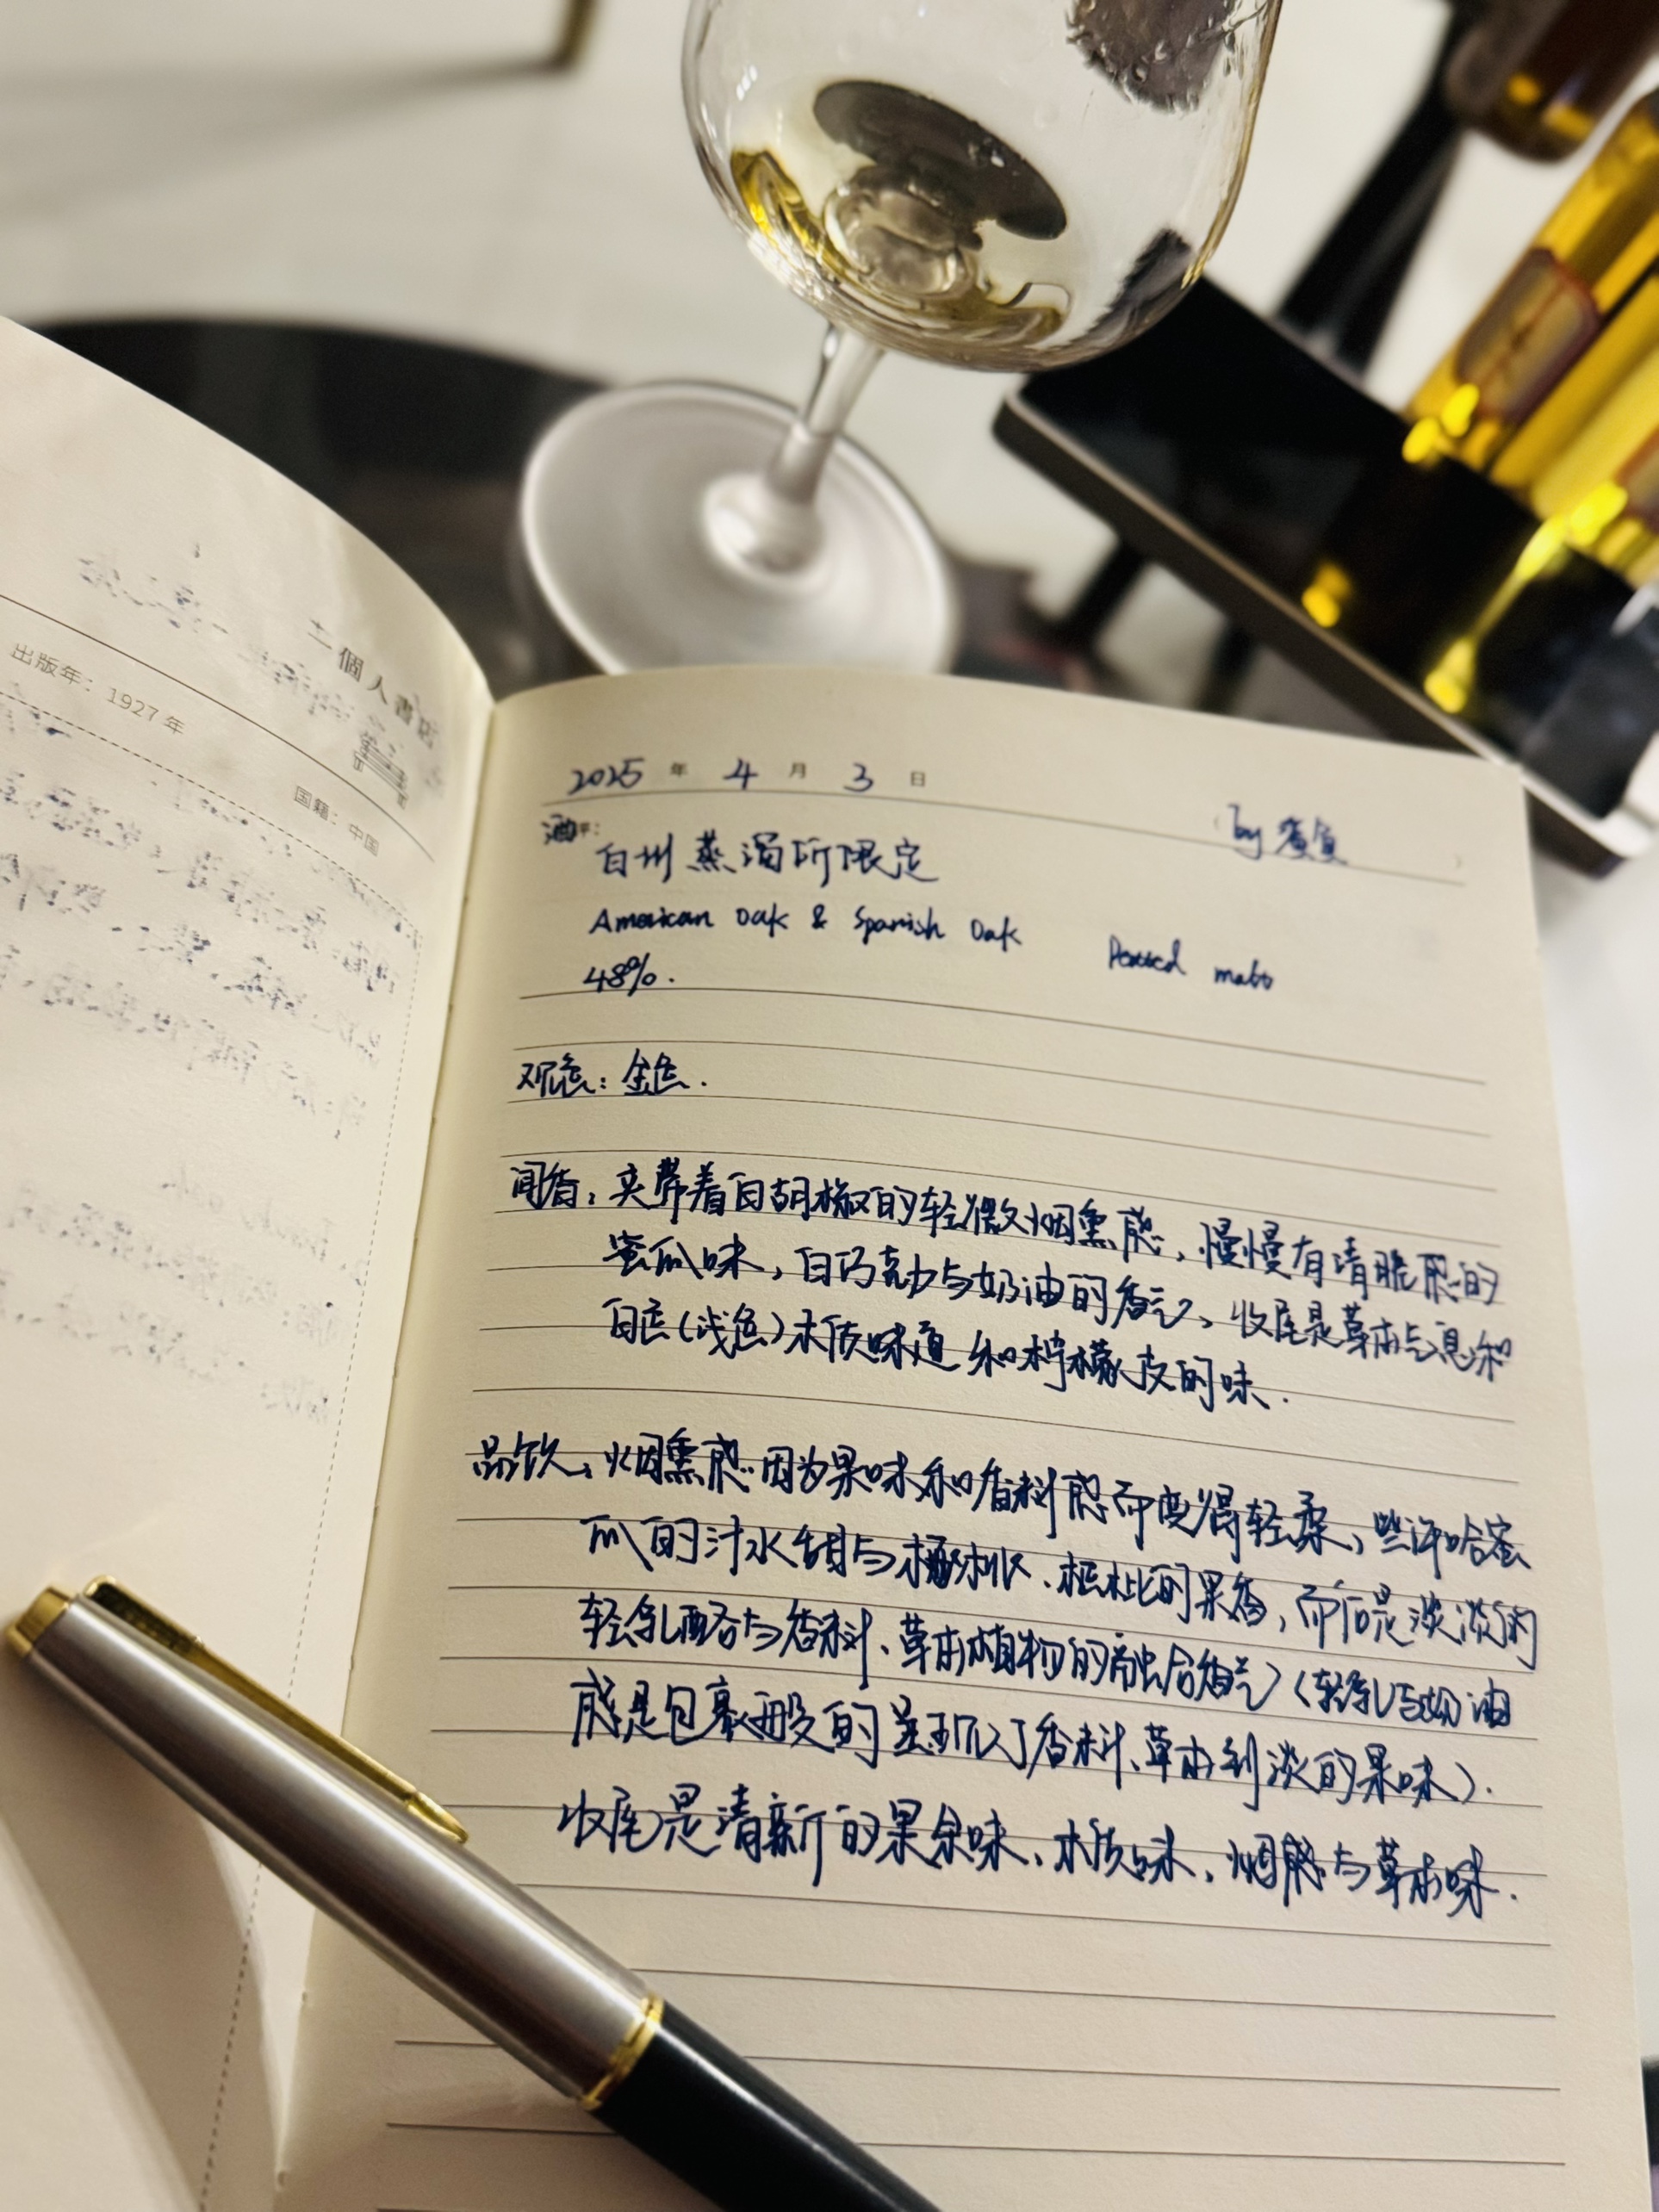 二個人書店
出版年：1927年
国籍：中国
2025年4月3日
酒评：
by 鱼
白州蒸溜所限定
American Oak & Spanish Oak Peated malt
48%.
观色：金色.
闻香：夹带着白胡椒的轻微烟熏感，慢慢有清脆感的
蜜瓜味，白巧克力与奶油的香气、收尾是草本气息和
白色(浅色)木质味道和柠檬皮的味.
品饮：烟熏感因为果味和香料感而变得轻柔、些许哈蜜
瓜的汁水甜与杨桃、枇杷的果香，而后是淡淡的
轻乳酪与香料、草本植物的融合香气(轻乳与奶油
感是包裹般的呈现了香料、草本到淡的果味).
收尾是清新的果余味、木质味，烟感与草本味.